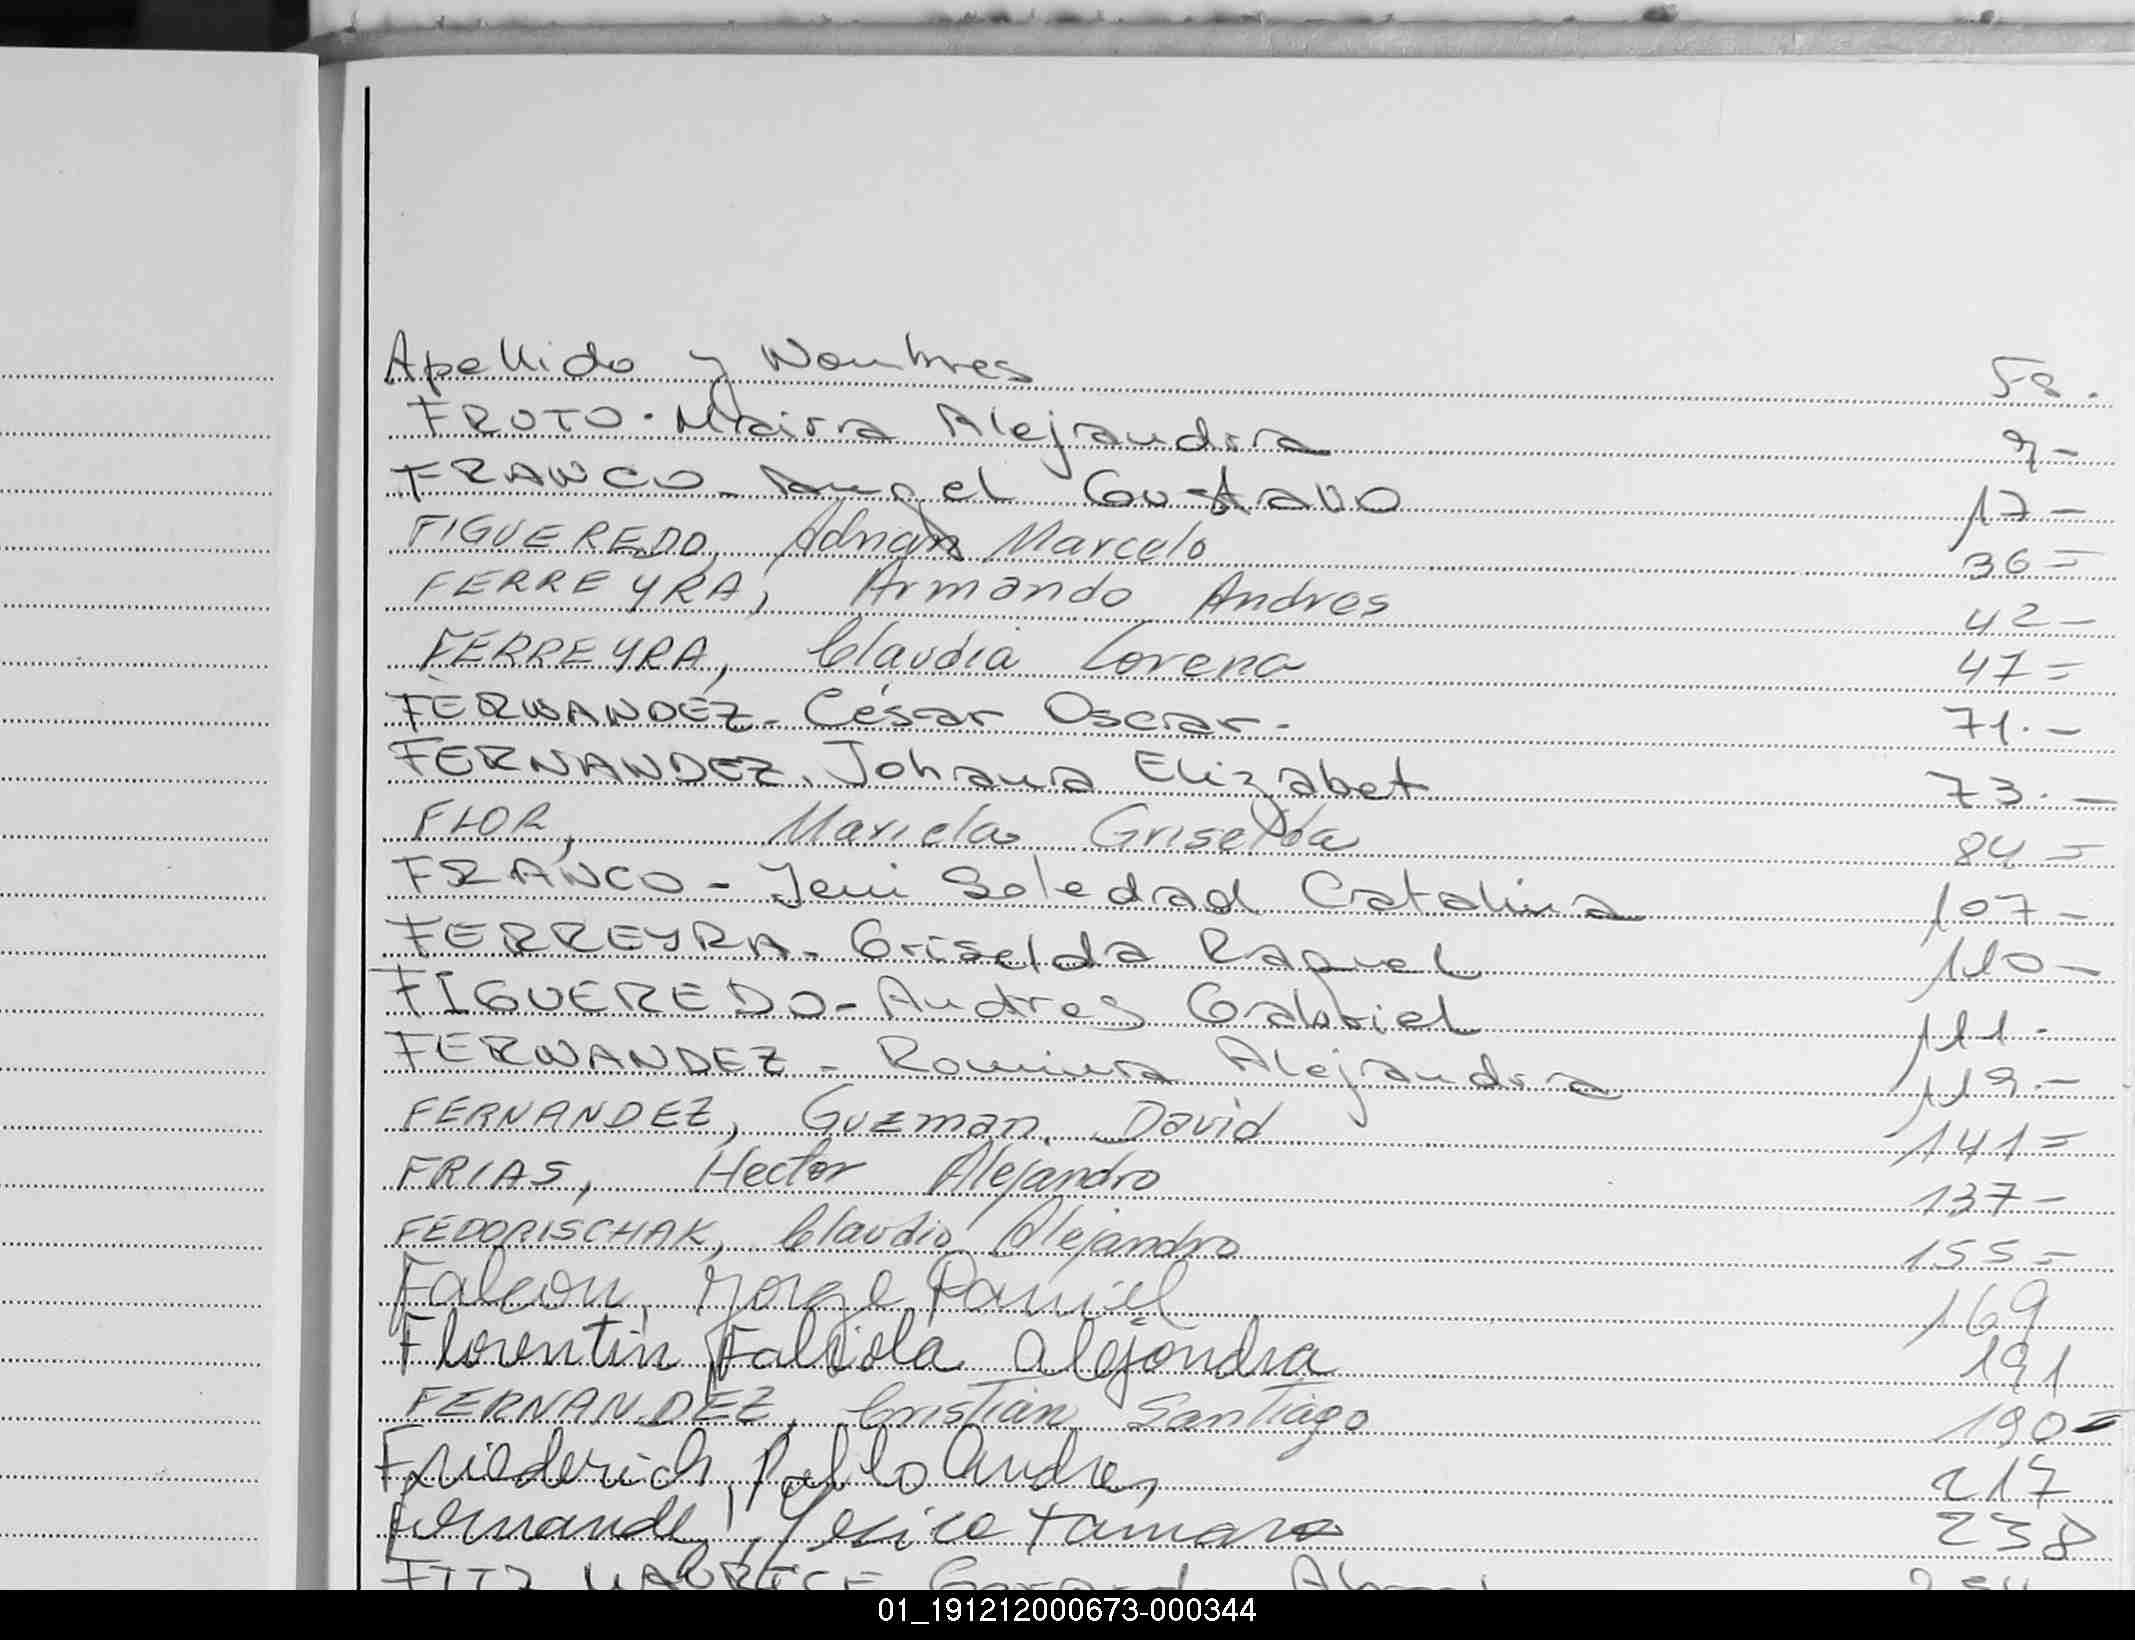 Apellido y Nombres Fs.
FRUTO. Maira Alejandra 9-
FRANCO - Angel Gustavo 17-
FIGUEREDO, Adrian Marcelo 36=
FERREYRA, Armando Andres 42-
FERREYRA, Claudia Lorena 47=
FERNANDEZ - César Oscar - 71.-
FERNANDEZ. Johana Elizabet 73.-
FLOR, Mariela Griselda 84=
FRANCO - Jeni Soledad Catalina 107-
FERREYRA - Griselda Raquel 110-
FIGUEREDO - Andres Gabriel 111-
FERNANDEZ - Romina Alejandra 119.-
FERNANDEZ, Guzman David 141=
FRIAS, Hector Alejandro 137-
FEDORISCHAK, Claudio Alejandro 155=
Falcon, Jorge Daniel 169
Florentin, Fabiola Alejandra 191
FERNANDEZ, Cristian Santiago 190=
Friederich, Pablo Andres 217
Fernande, Yesica Tamara 238
FITZ MAURICE
01_191212000673-000344